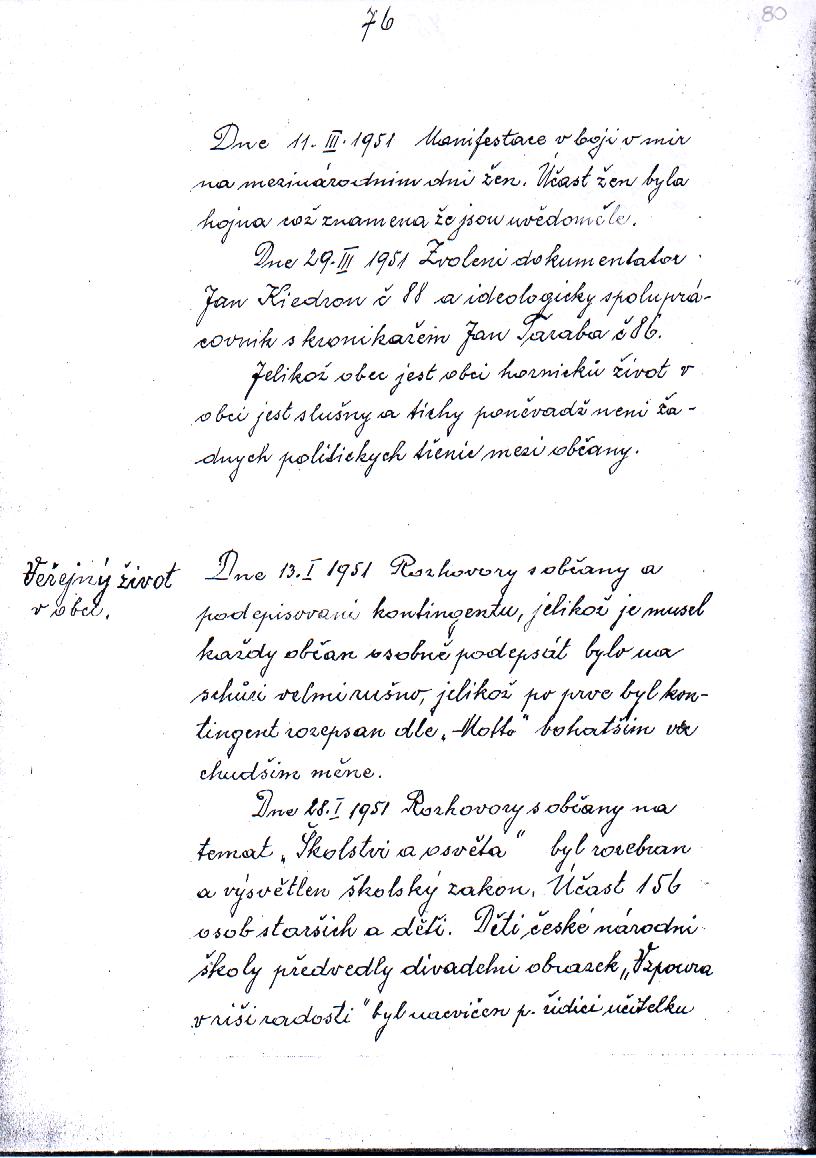 76
80
Dne 11. III. 1951 Manifestace v boji v mir
na mezinárodnim dni žen. Účast žen byla
hojna což znamena že jsou uvědoměle.
Dne 29. III 1951 Zvoleni dokumentator
Jan Kiedron č 88 a ideologicky spoluprá-
covnik s kronikařem Jan Taraba č 86.
Jelikož obec jest obci hornicků život v
obci jest slušny a tichy poněvadž neni ža-
dnych politickych třenic mezi občany.
Veřejný život
v obci.
Dne 13. I 1951 Rozhovory s občany a
podepisovani kontingentu, jelikož je musel
každy občan osobně podepsát bylo na
schůzi velmi rušno, jelikož po prve byl kon-
tingent rozepsan dle „Motto" bohatšim vic
chudšim měne.
Dne 28. I 1951 Rozhovory s občany na
temat „Školstvi a osvěta" byl rozebran
a výsvětlen školský zakon. Účast 156
osob starších a děti. Děti české národni
školy předvedly divadelni obrazek „Vzpoura
v riši radosti" byl nacvičen p. řidici učitelku